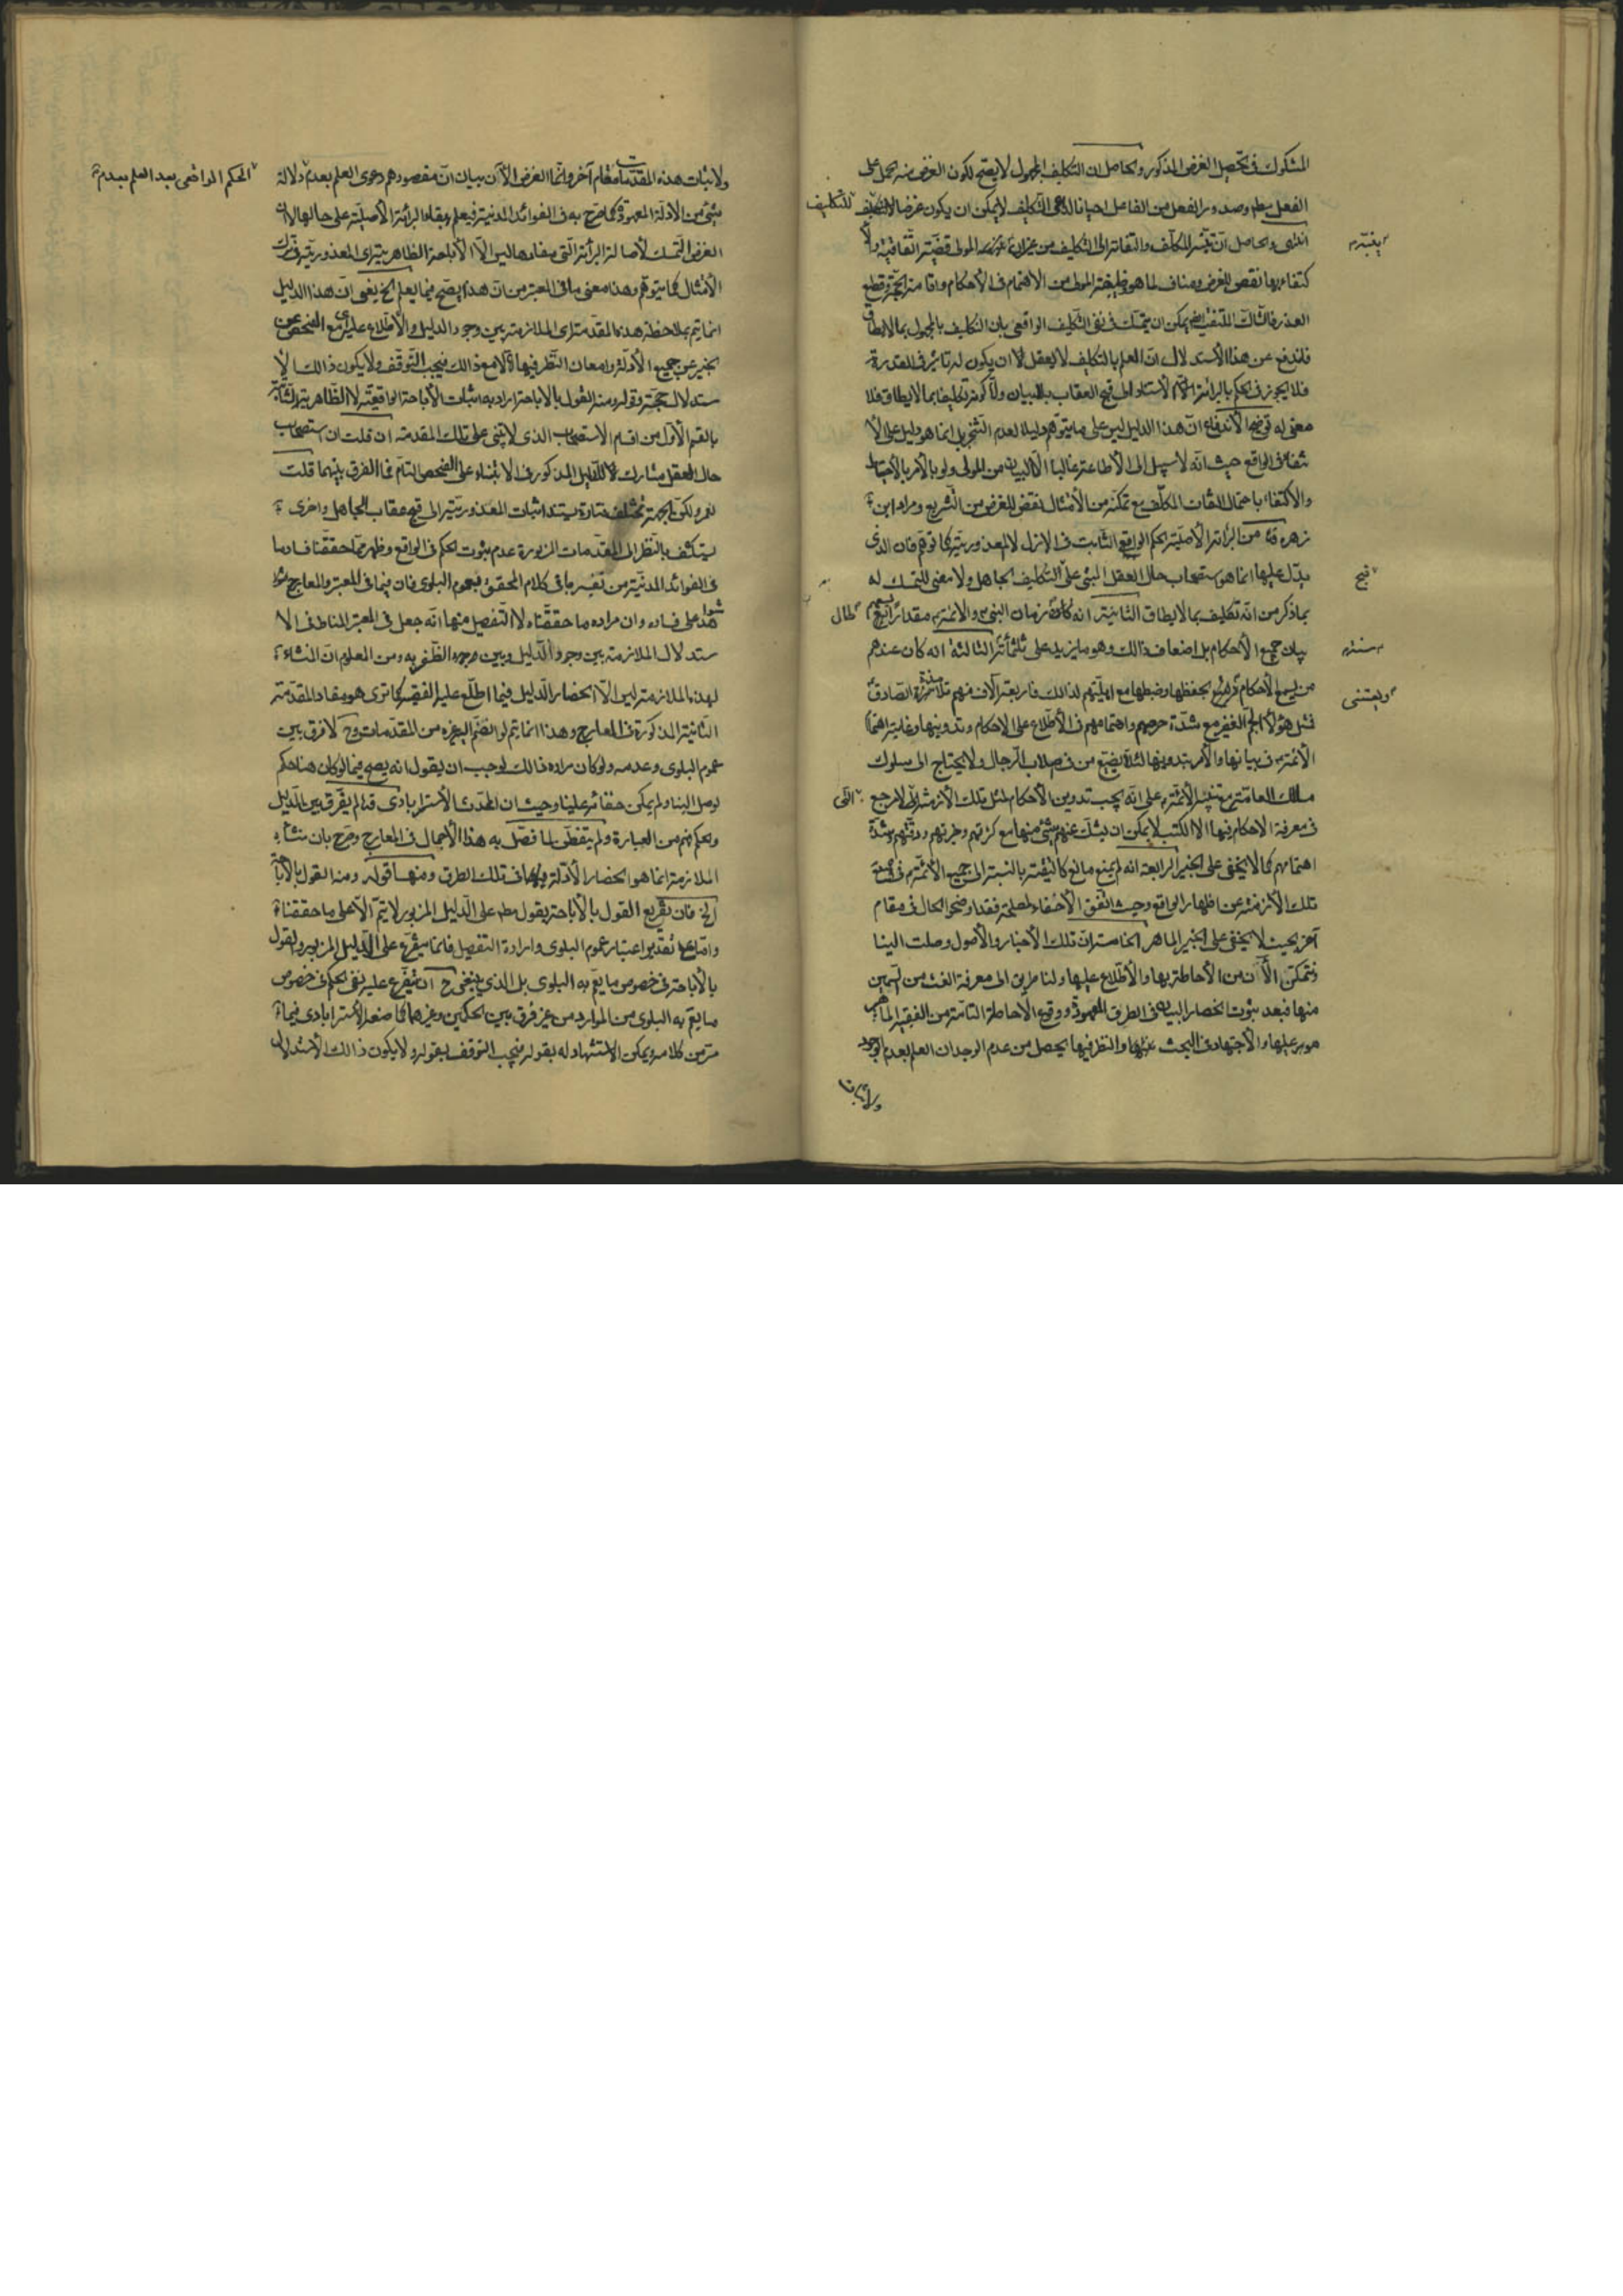 المشكوك في تحصيل الغرض المذكور والحاصل ان التكليف المجهول لا يصح لكون الغرض منه الحمل على
الفعل مطم وصدور الفعل من الفاعل احيانا لداعى التكليف لا يمكن ان يكون غرضا للتكليف
انتهى والحاصل ان تنبّه المكلف والتفاته الى التكليف من غير ان المولى قضية اتفاقية ولا
كتفاء بها نقض للغرض ومناف لما هو وظيفة المولى من الاهتمام في الأحكام واقامة الحجة وقطع
العذر يمكن ان يتمسك في نفى التكليف الواقعى بان التكليف بالمجهول بما لا يطاق
فاندفع عن هذا الأستدلال ان العلم بالتكليف لا يعقل لا ان يكون له تاثير في القدرة
فلا يجوز في الحكم بالبرائة الأستناد الى قبح العقاب بلا بيان ولا كونه تكليفا بما لا يطاق فلا
معنى له توضيح الأندفاع ان هذا الدليل ليس على ما يتوهم دليلا لعدم التنجز بل انما هو دليل على الأ
نتفاء في الواقع حيث انه لا سبيل الى الأطاعة غالبا الا البيان من المولى ولو بالأمر بالأحتياط
والأكتفاء باحتمال التفات المكلف مع تمكنه من الأمتثال نقض للغرض من التشريع ومراد ابن
زهره من البرائة الأصلية الحكم الواقع الثابت في الازل لا المعذورية كما توهم فان الذى
يدل عليها انما هو استصحاب حال العقل المبنى على التكليف الجاهل ولا معنى للتمسك له
بما ذكر من انه تكليف بما لا يطاق الثانية انه كان زمان النبى والائمة مقدار
بيان جميع الأحكام بل اضعاف ذلك وهو ما يزيد على ثلثمائة الثالثة انه كان عندهم
من يسمع الأحكام ويحفظها وضبطها مع اهليتهم لذلك فاربعة آلاف منهم تلامذة الصادق
فمثل هؤلاء الجم الغفير مع شدة حرصهم واهتمامهم في الأطلاع على الاحكام وتدوينها وغاية اهتمام
الأئمة في بيانها والأمر بتدوينها لئلا يضيع من في صلاب الرجال ولا يحتاج الى سلوك
مسالك العامة مع تنبيه الأئمة على انه يجب تدوين الأحكام لمثل تلك الأزمنة لا مرجع
في معرفة الاحكام فيها الا الكتب لا يمكن ان يشك عنهم شئ منها مع كثرتهم وخبرتهم ودقتهم وشدة
اهتمامهم كما لا يخفى على الخبير الرابعة انه لم يمنع مانع كالتقية بالنسبة الى جميع الأئمة في جميع
تلك الأزمنة عن اظهار الواقع وحيث اتفق الأخفاء لمصلحة فقد اوضحوا الحال في مقام
آخر بحيث لا يخفى على الخبير الماهر الخامسة ان تلك الأخبار والأصول وصلت الينا
فنتمكن الأن من الأحاطة بها والأطلاع عليها ولنا طريق الى معرفة الغث من السمين
منها فبعد ثبوت انحصار البيان في الطرق المعهودة ووقوع الاحاطة التامة من الفقيه الماهر
عليها والأجتهاد في البحث عنها والنظر فيها يحصل من عدم الوجدان العلم بعدم الوجود
ينبّه
للتكليف
قبح
طال
سنة
ويعتنى
التى
ولأثبات
ولاثبات هذه المقدمات مقام آخر وانما الغرض الأن بيان ان مقصودهم دعوى العلم بعدم دلالة
شئ من الادلة المعهودة كما صرح به في الفوائد المدنية فيعلم بقاء البرائة الأصلية على حالها لا ان
الغرض التمسك لأصالة البرائة التى مفادها ليس الا الأباحة الظاهرية اى المعذورية في ترك
الأمتثال كما يتوهم وهذا معنى ما في المعتبر من ان هذا يصح فيما يعلم الخ يعنى ان هذا الدليل
انما يتم بملاحظة هذه المقدمة اى الملازمة بين وجود الدليل والأطلاع عليه اى مع الفحص من
الخبير عن جميع الأدلة وامعان النظر فيها لا مع ذلك فيجب التوقف ولا يكون ذلك الأ
ستدلال حجة وقوله ومنه القول بالاباحة اراد به اثبات الأباحة الواقعية لا الظاهرية الثابتة
بالقسم الأول من اقسام الاستصحاب الذى لا يبتنى على تلك المقدمة ان قلت ان استصحاب
حال العقل مشارك للدليل المذكور في الابتناء على الفحص التام فما الفرق بينهما قلت
نعم ولكن الجهة تختلف فتارة يستند اثبات المعذورية الى قبح عقاب الجاهل واخرى
يستكشف بالنظر الى المقدمات المزبورة عدم ثبوت الحكم في الواقع وظهر مما حققنا فساد ما
في الفوائد المدنية من تفسير ما في كلام المحقق بعموم البلوى فان فيما في المعتبر والمعارج شوا
هد على فساده وان مراده ما حققناه لا التفصيل منها انه جعل في المعتبر المناط في الا
ستدلال الملازمة بين وجود الدليل وبين الظفر به ومن المعلوم ان المنشاء
لهذه الملازمة ليس الا انحصار الدليل فيما اطلع عليه الفقيه كما ترى هو مفاد المقدمة
الثانية المذكورة في المعارج وهذا انما يتم لو انضم اليه غيره من المقدمات وح لا فرق بين
عموم البلوى وعدمه ولو كان مراده ذلك لوجب ان يقول انه يصح فيما لو كان هنا حكم
لوصل الينا ولم يكن خفائه علينا وحيث ان المحدث الأسترابادى قده لم يفرق بين الدليل
والحكم فهم من العبارة ولم يتفطن لما فصل به هذا الأجمال في المعارج وصرح بان منشاء
الملازمة انما هو انحصار الأدلة في تلك الطرق ومنها قوله ومنه القول بالأباحة
الخ فان تفريع القول بالأباحة بقول مطم على الدليل المزبور لا يتم الا على ما حققناه
واما على تقدير اعتبار عموم البلوى وارادة التفصيل فانما يتفرع على الدليل المزبور القول
بالأباحة في خصوص ما يعم به البلوى بل الذى ينبغى ح ان يتفرع عليه نفى الحكم في خصوص
ما يعم به البلوى من الموارد من غير فرق بين الحكمين وغيرهما كما صنعه الأسترابادى فيما
مر من كلامه ويمكن الاستشهاد له بقوله فيجب التوقف بقوله ولا يكون ذلك الأستدلال
الحكم الواقعى بعد العلم بعدم